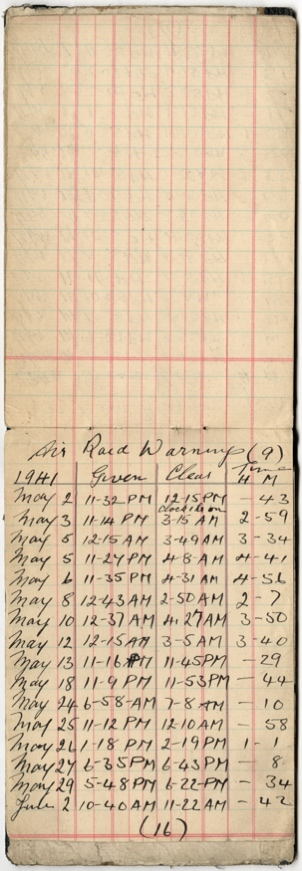 Air Raid Warning (9)
1941 Given Clear Time
H M
May 2 11-32 PM 12-15 PM - 43
clocks 1 hr on
May 3 11-14 PM 3-15 AM 2-59
May 5 12-15 AM 3-49 AM 3-34
May 5 11-27 PM 4-8 AM 4-41
May 6 11-35 PM 4-31 AM 4-56
May 8 12-43 AM 2-50 AM 2-7
May 10 12-37 AM 4-27 AM 3-50
May 12 12-15 AM 3-5 AM 3-40
May 13 11-16 PM 11-45 PM - 29
May 18 11-9 PM 11-53 PM - 44
May 24 6-58 AM 7-8 AM - 10
May 25 11-12 PM 12-10 AM - 58
May 26 1-18 PM 2-19 PM 1-1
May 27 6-35 PM 6-43 PM - 8
May 29 5-48 PM 6-22 PM - 34
June 2 10-40 AM 11-22 AM - 42
(16)